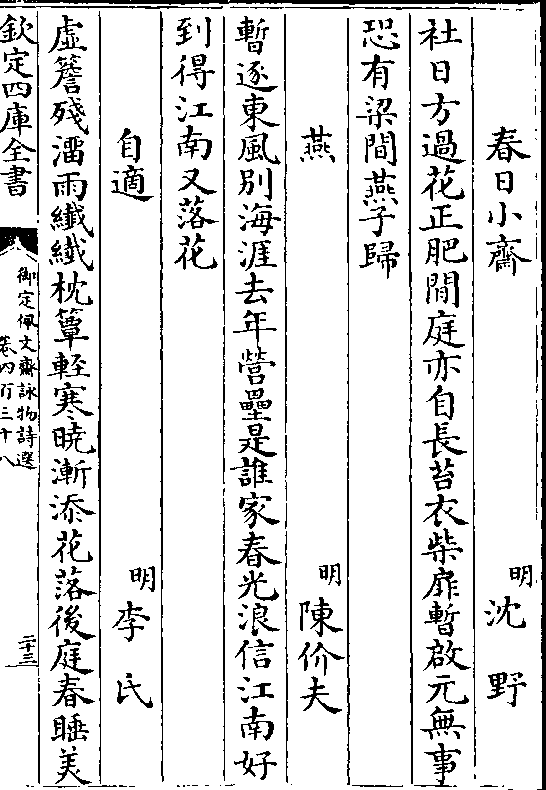 春日小齋 明 沈野
社日方過花正肥閒庭亦自長苔衣柴扉暫啟元無事
恐有梁間燕子歸
燕 明 陳价夫
暫逐東風別海涯去年營壘是誰家春光浪信江南好
到得江南又落花
自適 明 李氏
虛簷殘溜雨纖纖枕簟輕寒曉漸添花落後庭春睡美
欽定四庫全書
御定佩文齋詠物詩選
卷四百三十八
二十三